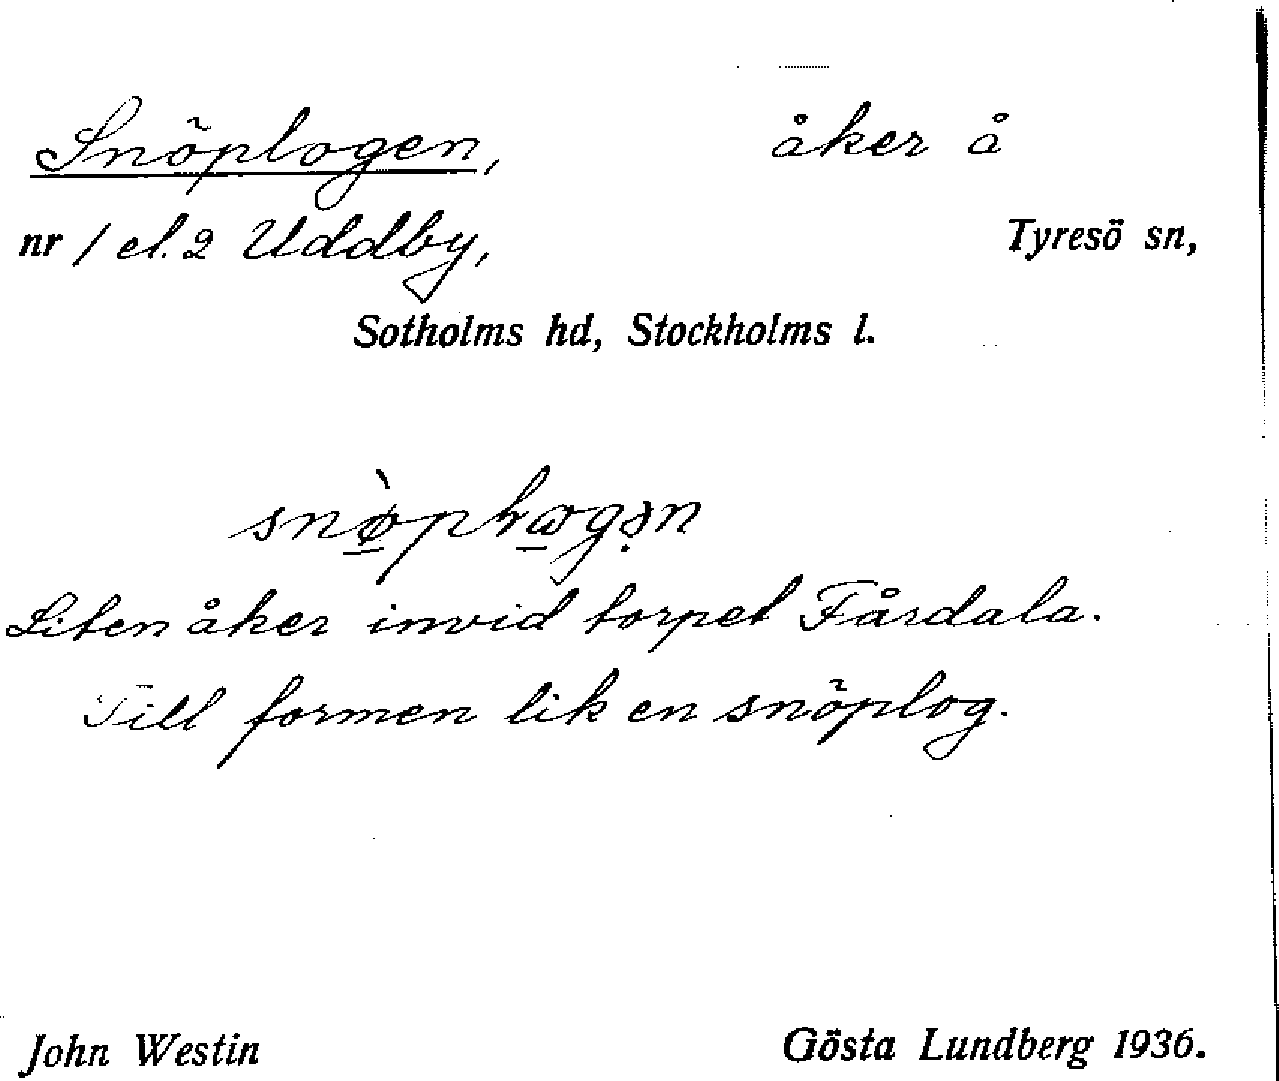 Snöplogen, åker å
nr 1 el. 2 Uddby, Tyresö sn,
Sotholms hd, Stockholms l.
Liten åker invid torpet Fårdala.
Till formen lik en snöplog.
John Westin Gösta Lundberg 1936.